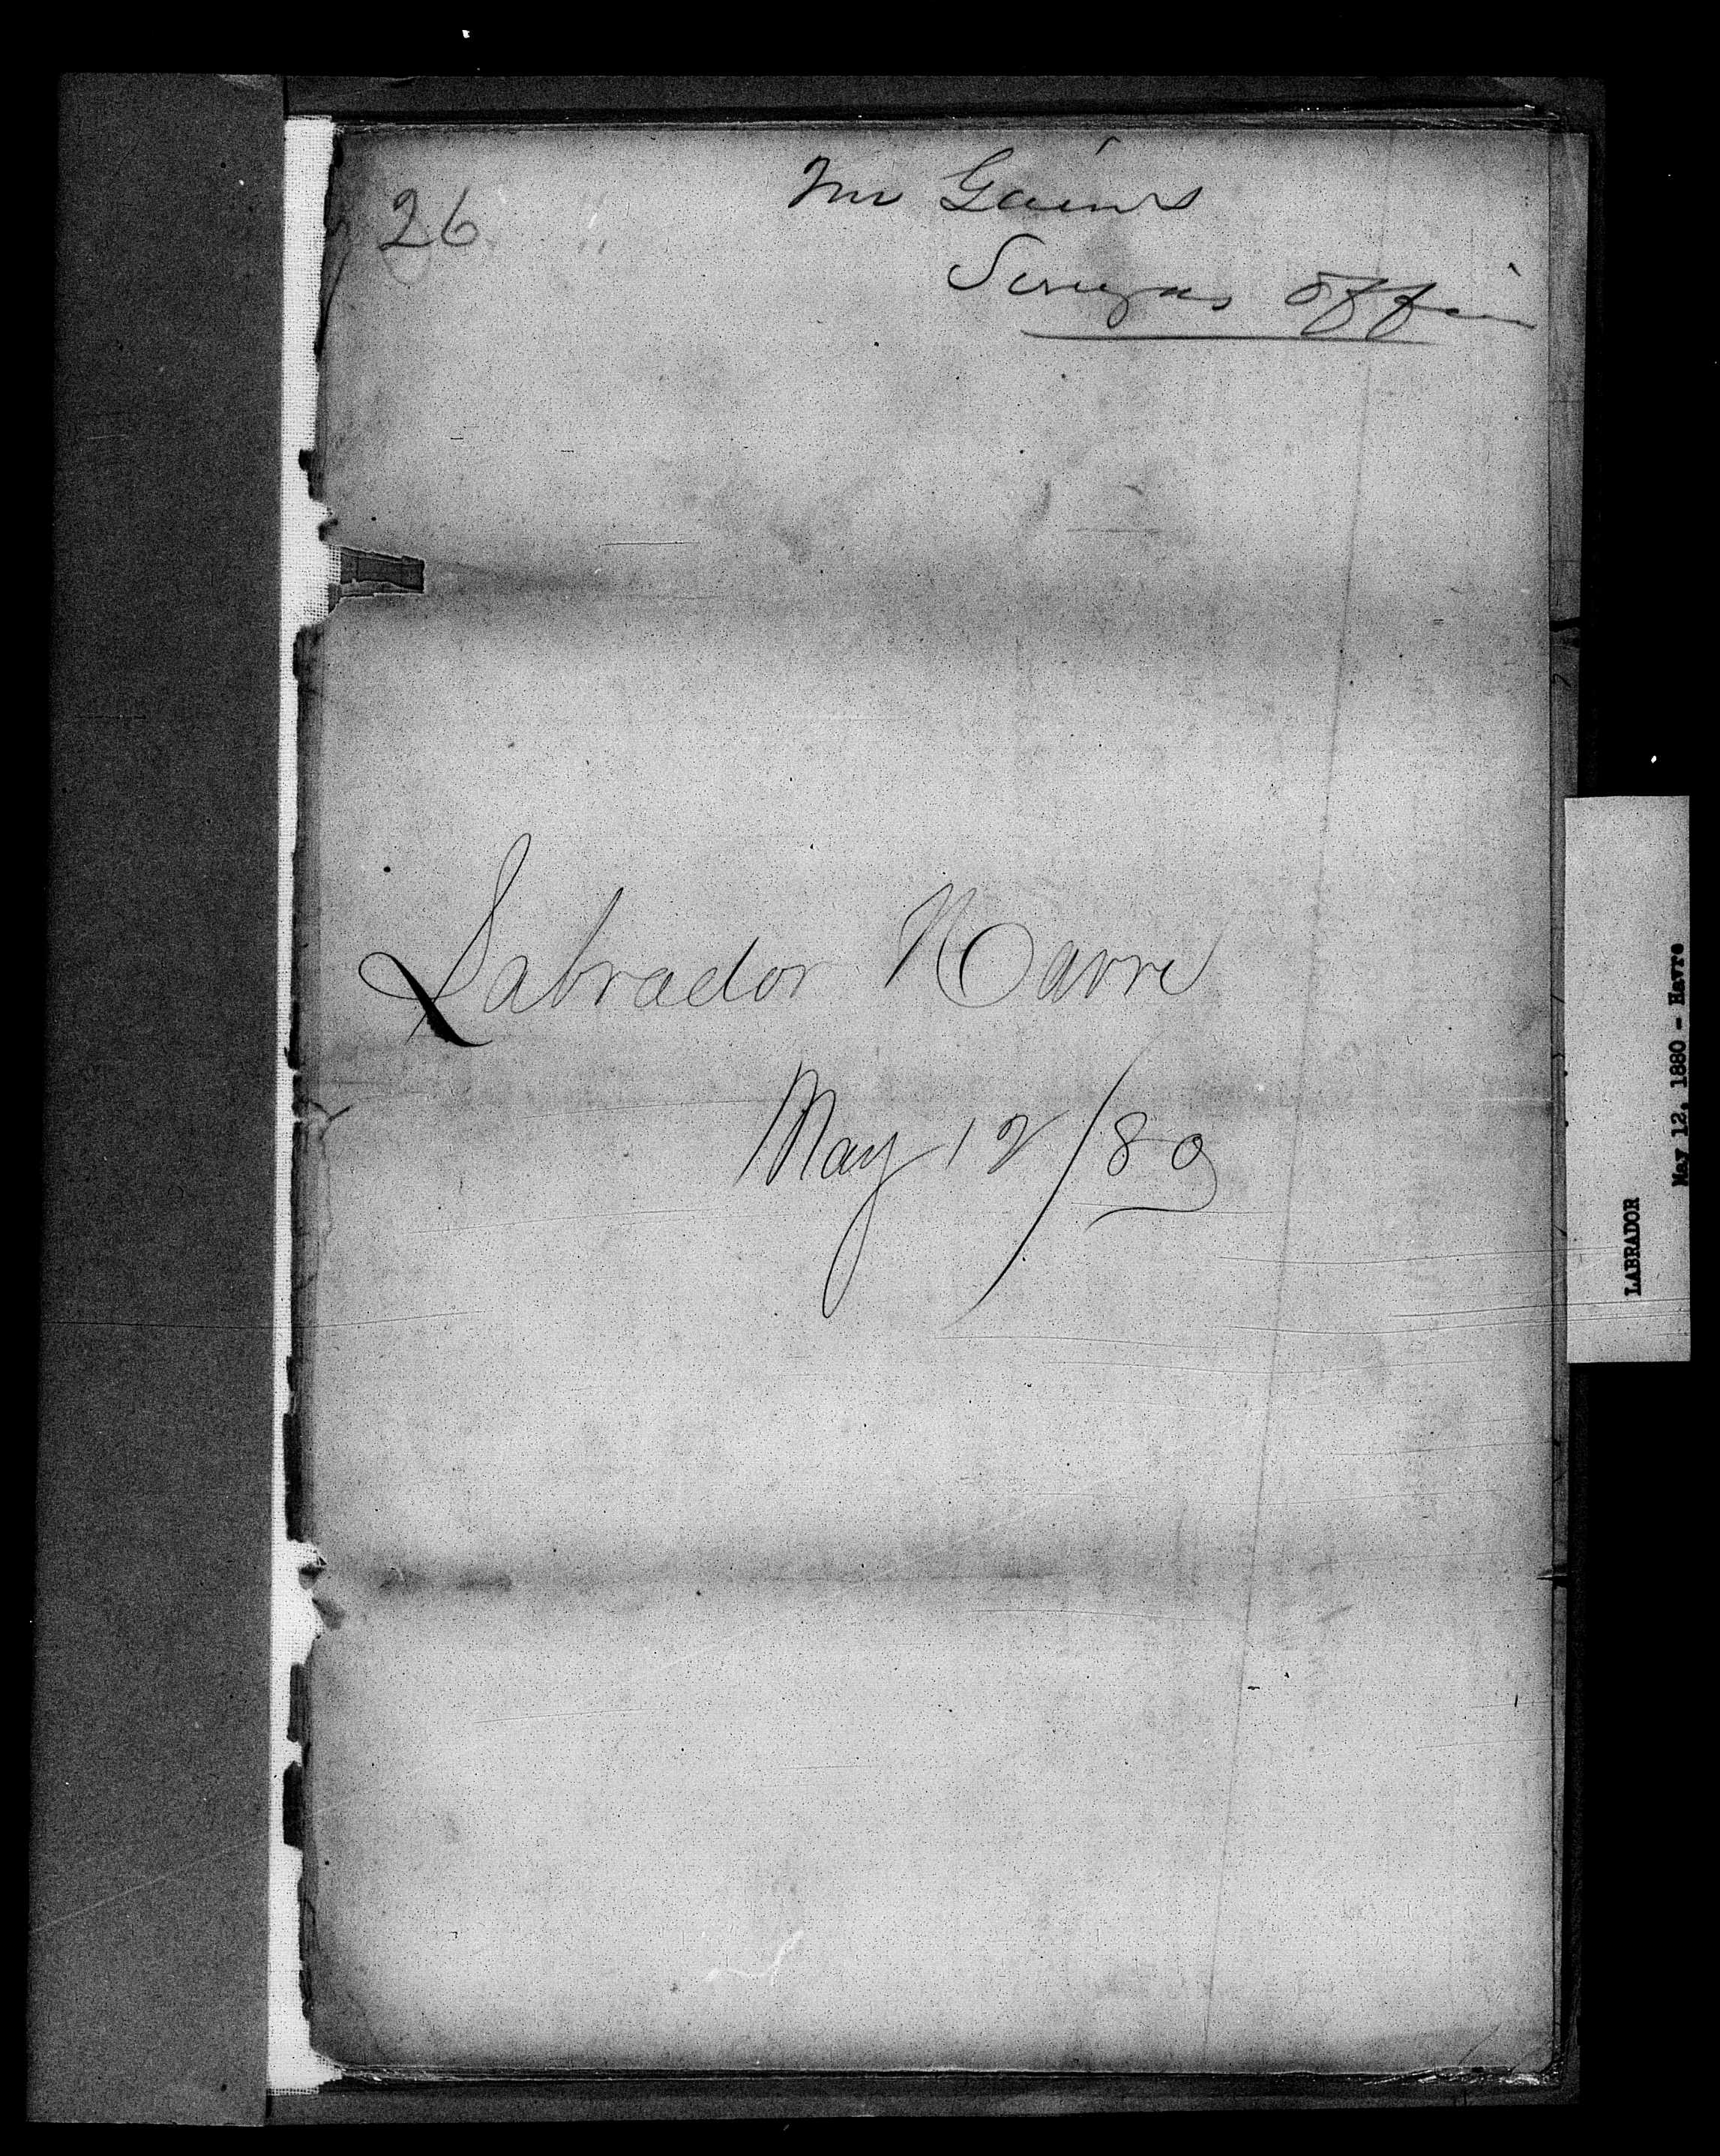 26
Mr Gaines
Surveyors Office
Labrador Havre
May 12/80
LABRADOR
May 12, 1880 - Havre